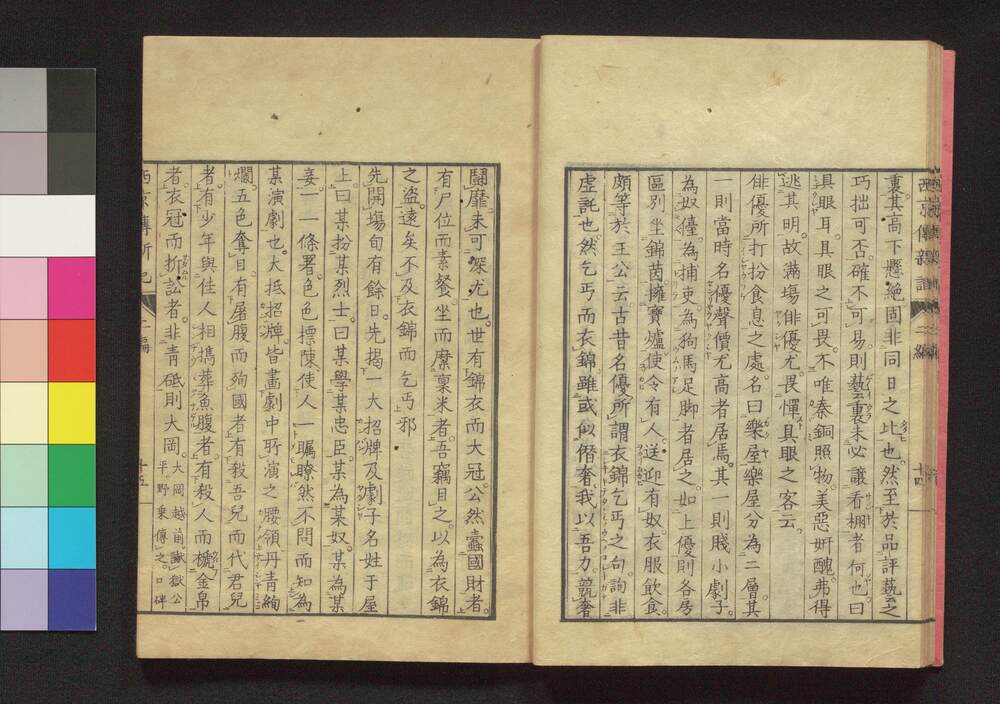 裏其高下懸絶固非同日之比也然至於品評藝之
巧拙可否確不可易則藝裏未必讓看棚者何也曰
具眼耳具眼之可畏不唯秦銅照物美惡妍醜弗得
逃其明故滿塲俳優尤畏憚具眼之客云
俳優所打扮食息之處名曰樂屋樂屋分為二層其
一則當時名優聲價尤高者居焉其一則賤小劇子
為奴儓為捕吏為狗馬足脚者居之如上優則各房
區別坐錦茵擁寶爐使令有人送迎有奴衣服飲食
頗等於王公云古昔名優所謂衣錦乞丐之句詢非
虚託也然乞丐而衣錦雖或似僭奢我以吾力競奢
鬪靡未可深尤也世有錦衣而大冠公然蠹國財者
有尸位而素餐坐而縻稟米者吾竊目之以為衣錦
之盜遠矣不及衣錦而乞丐邪
先開塲旬有餘日先揭一大招牌及劇子名姓于屋
上曰某扮某烈士曰某學某忠臣某為某奴某為某
妾一一條署色色標陳使人一矚瞭然不問而知為
某演劇也大抵招牌皆畫劇中所演之腰領丹青絢
爛五色奪目有屠腹而殉國者有殺吾兒而代君兒
者有少年與佳人相攜葬魚腹者有殺人而金帛
者衣冠而折訟者非青砥則大岡大岡越前獄公平野乗傳之口碑
二編
十五